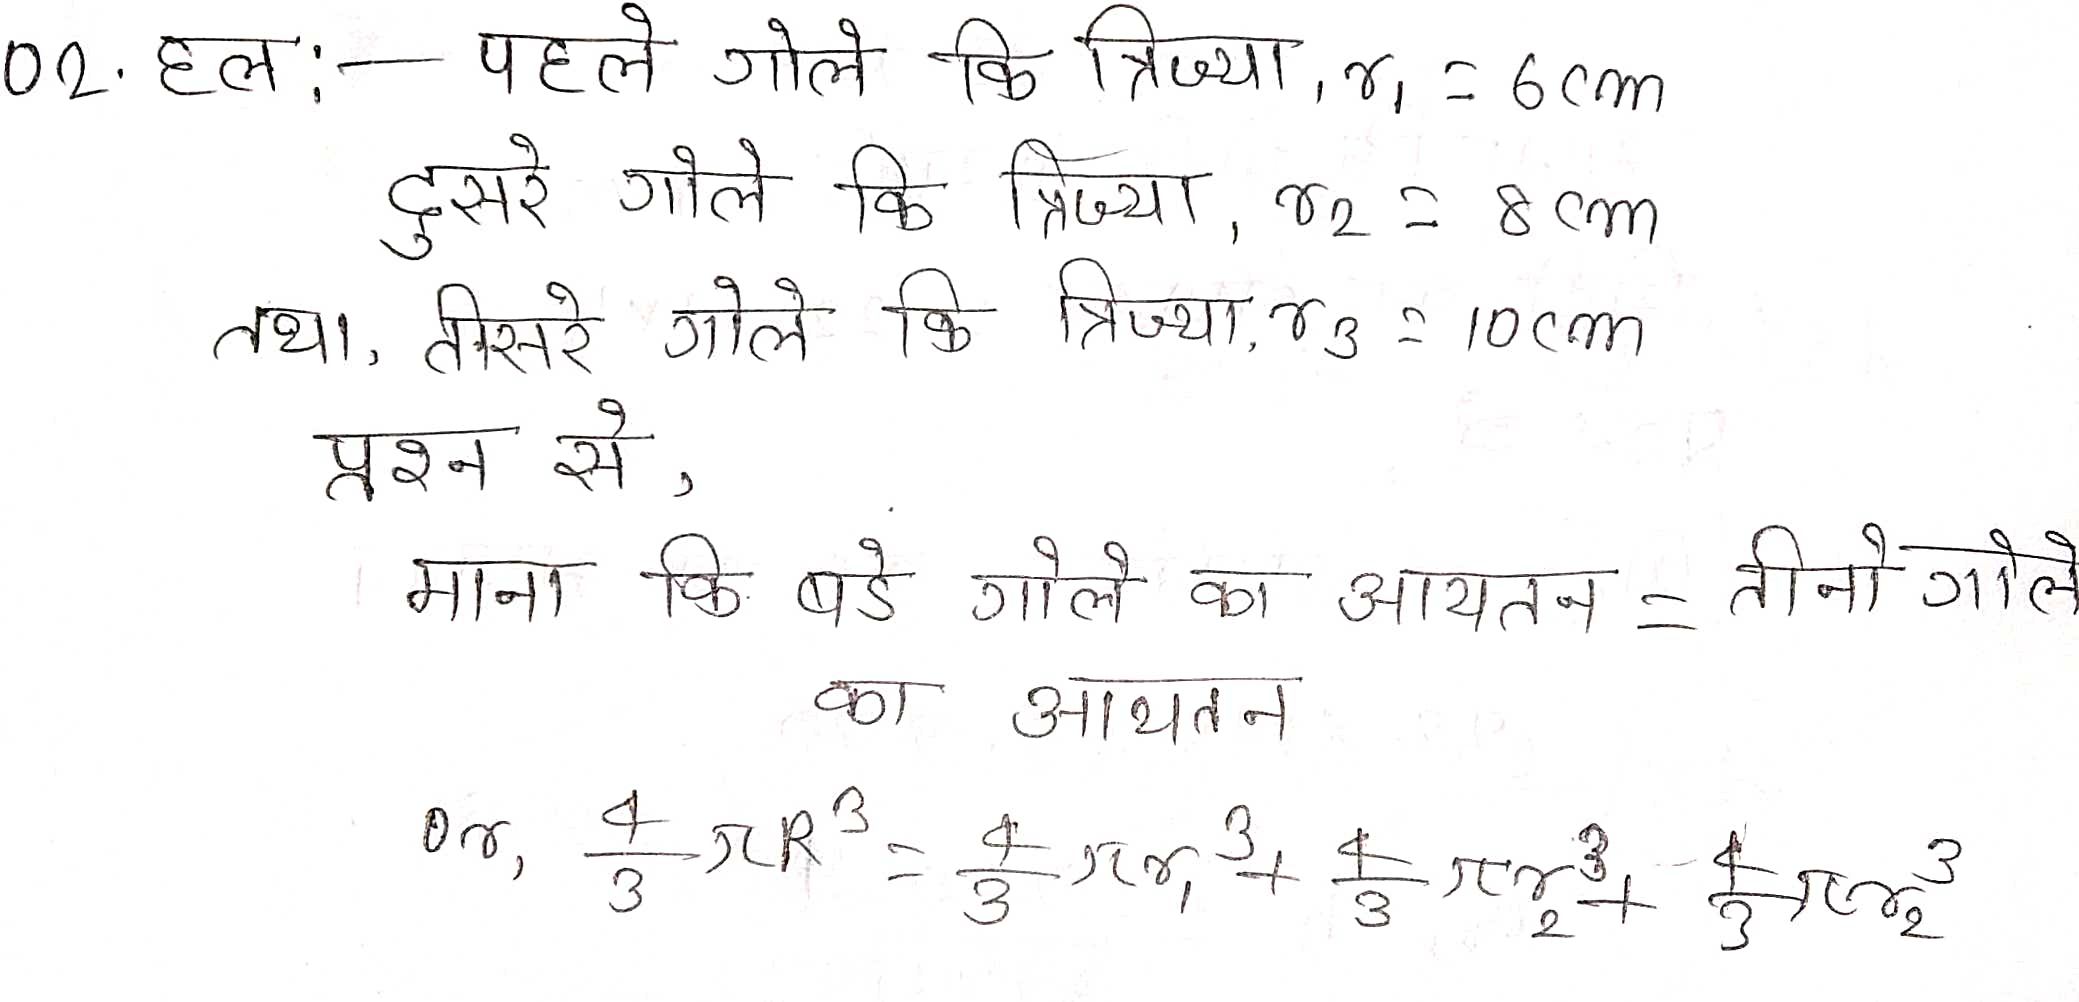 02. हल :— पहले गोले कि त्रिज्या, r₁ = 6cm
दुसरे गोले कि त्रिज्या, r₂ = 8cm
तथा, तीसरे गोले कि त्रिज्या, r₃ = 10cm
प्रश्न से,
माना कि बडे गोले का आयतन = तीनो गोले
का आयतन
Or, 4/3 πR³ = 4/3 πr₁³ + 4/3 πr₂³ + 4/3 πr₂³